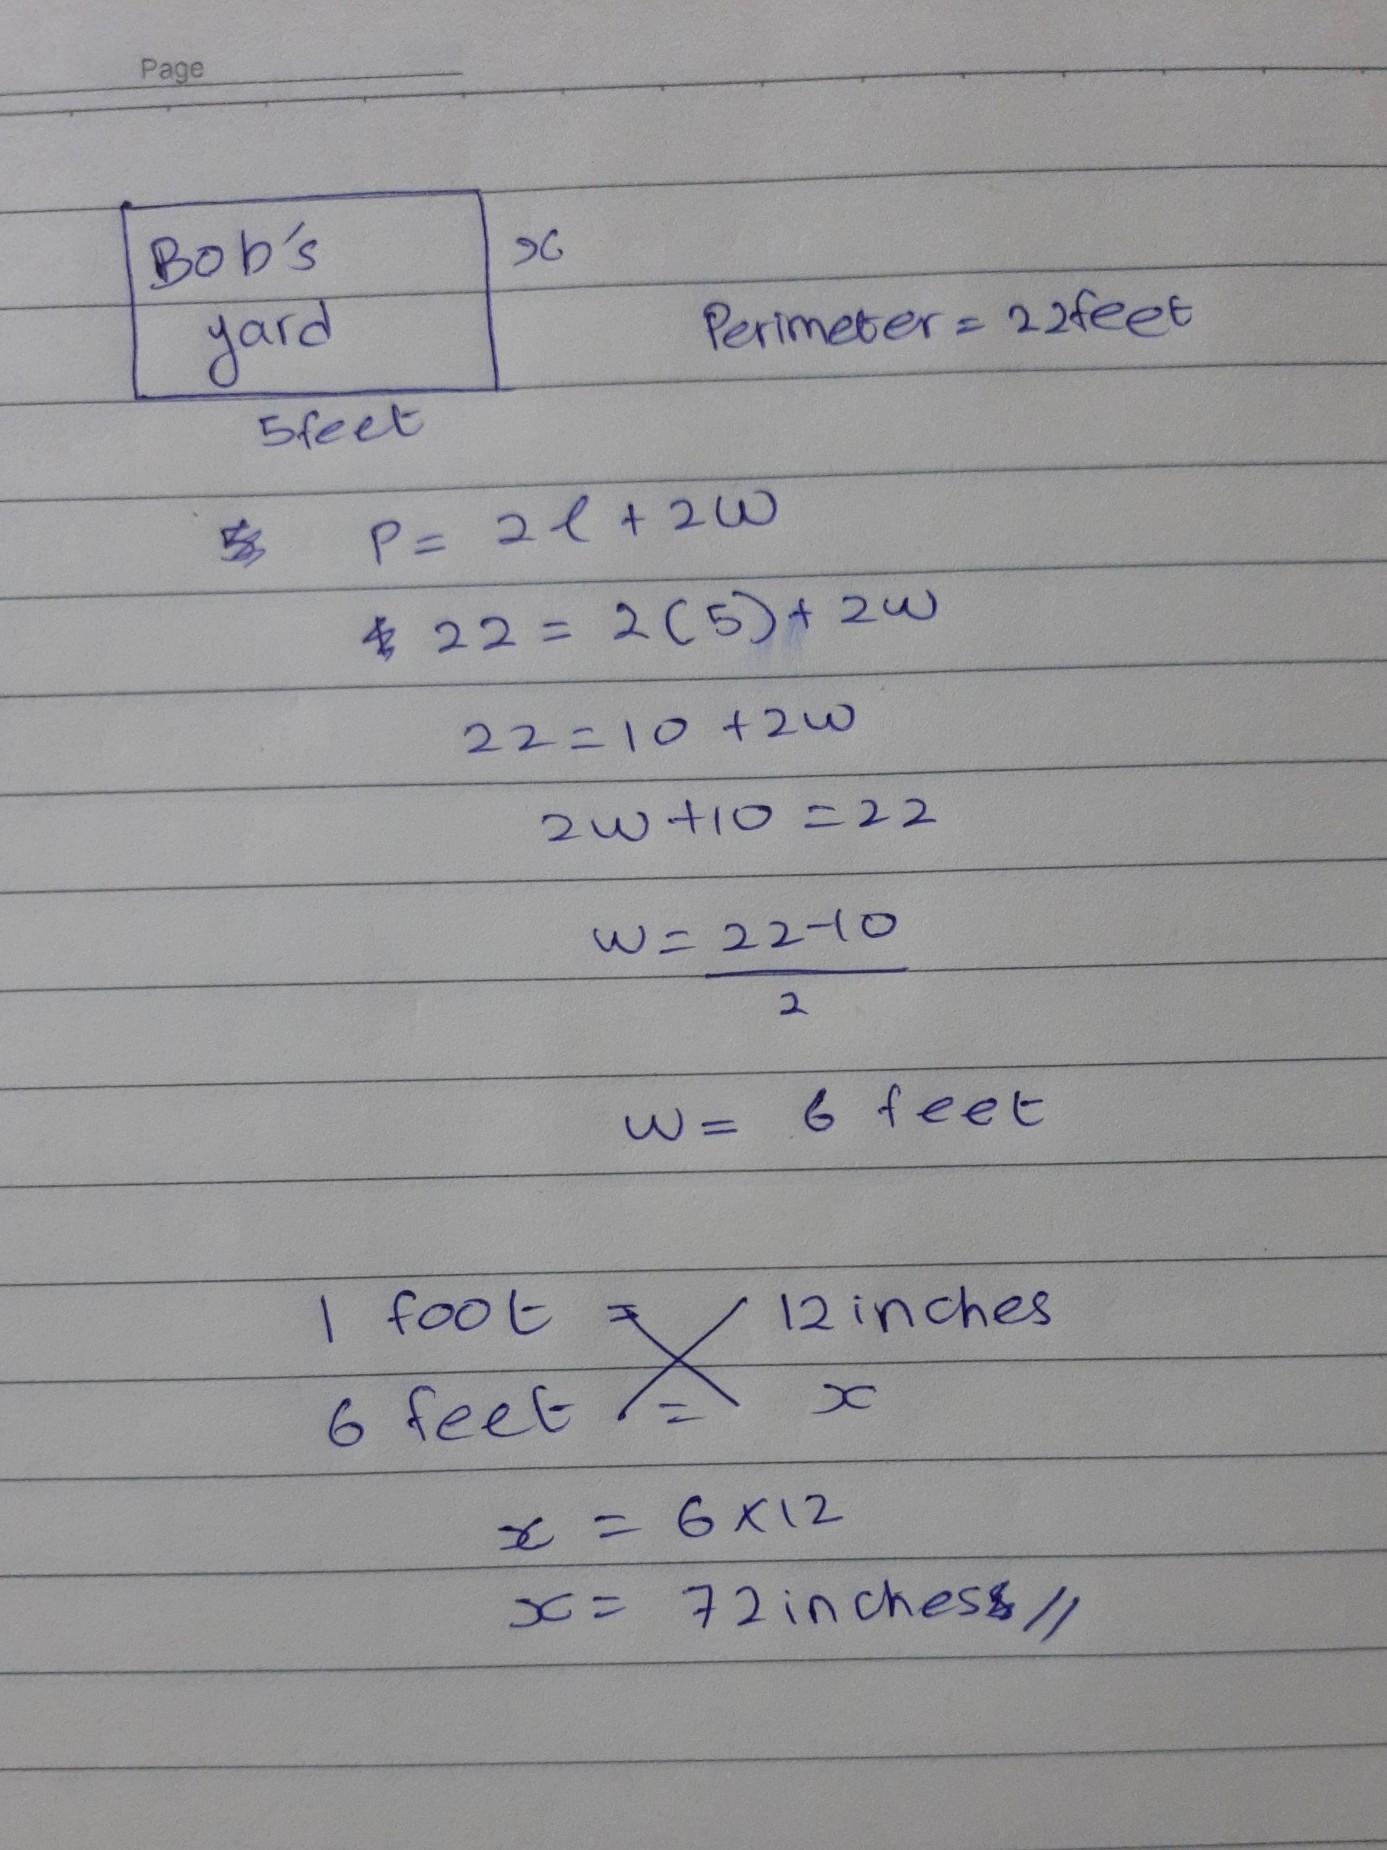 Page
Bob's
yard
x
Perimeter = 22feet
5feet
P = 2l + 2w
22 = 2(5) + 2w
22 = 10 + 2w
2w + 10 = 22
w = 22-10
2
w = 6 feet
1 foot = 12 inches
6 feet = x
x = 6 x 12
x = 72 inches //